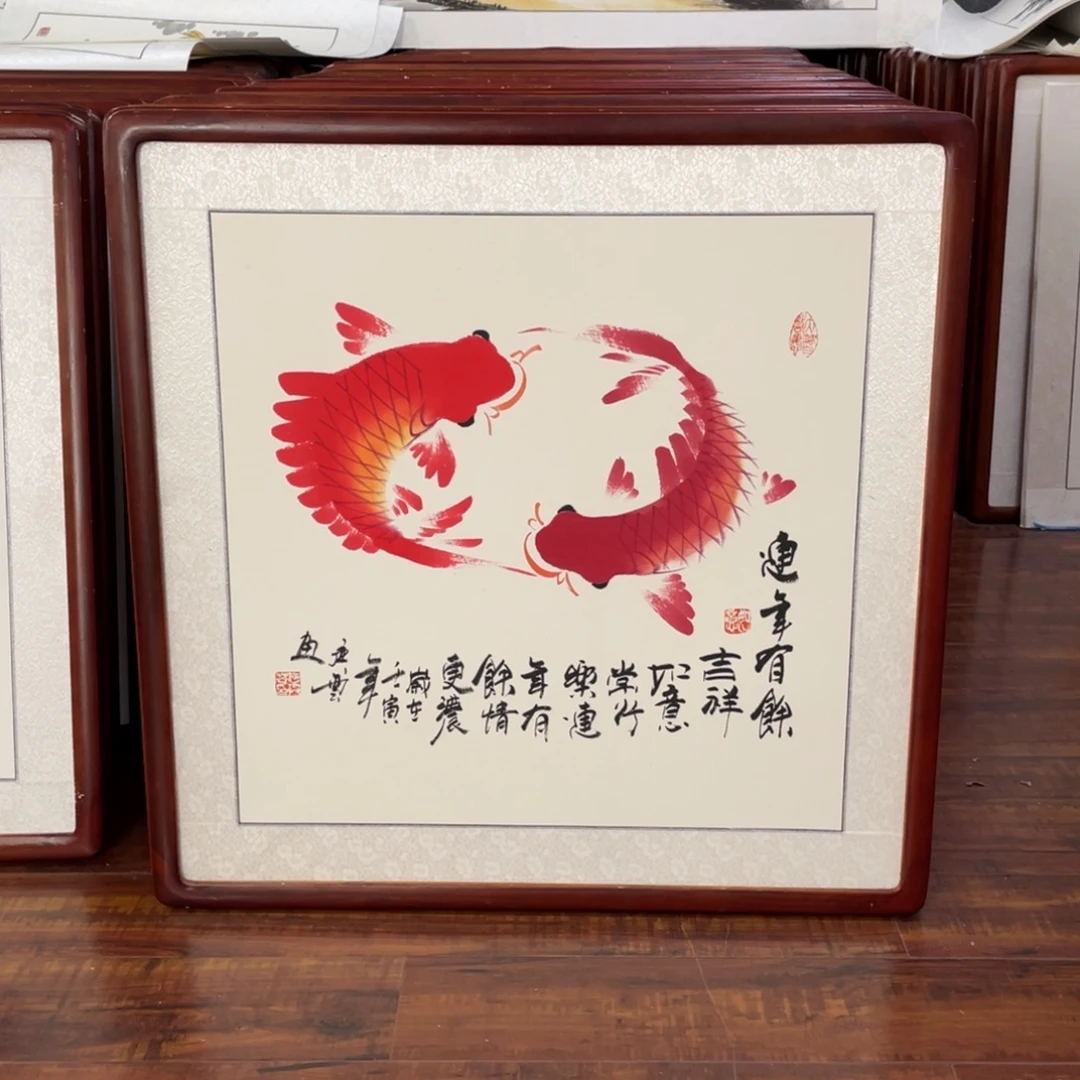 連年有餘
吉祥
如意
常行
樂連
年有
餘情
更濃
歲在
壬寅
年
畫